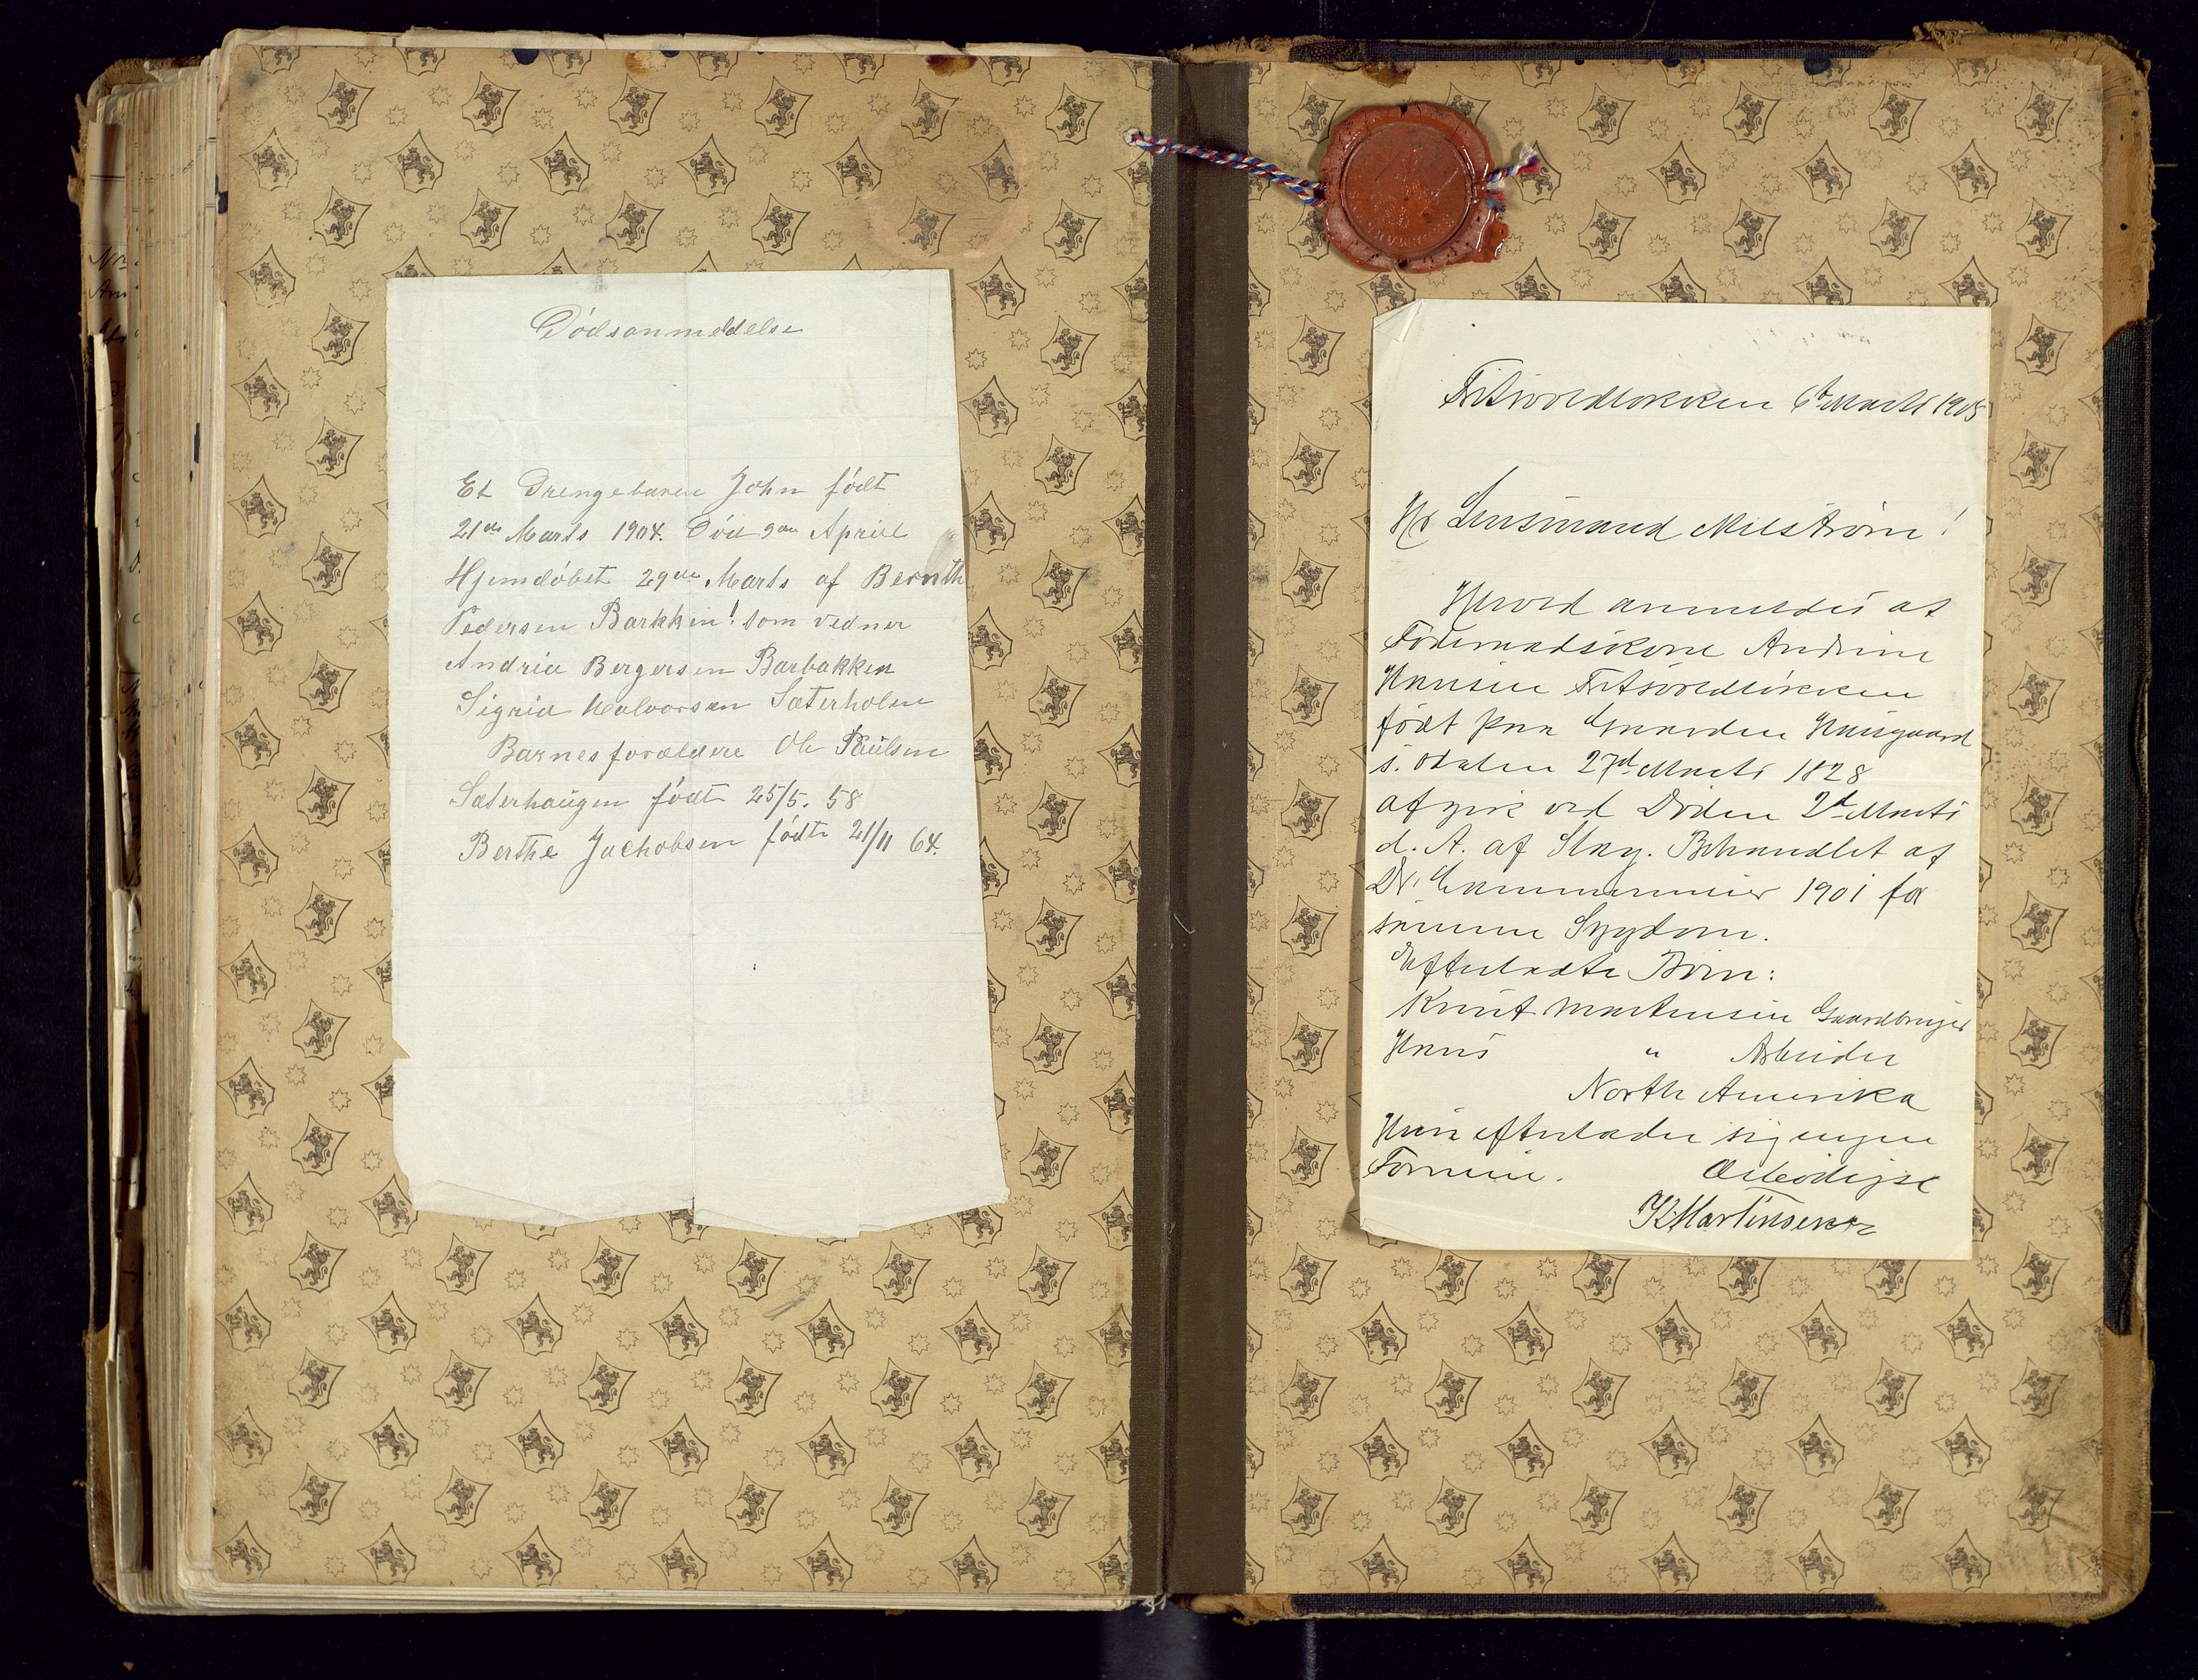 Dødsanmeldelse
Et Drengebarn John født
21de Marts 1904. Død 9de Apriel
Hjemdøbet 29de Marts af Bernth
Pedersen Barkken! som vedner
Andria Bergersen Barbakken
Sigrid Halvorsen Sæterholen
Barnesforældre Ole Paulsen
Sæterhaugen født 25/5. 58
Berthe Jachobsen født 21/11 64.
6te Marts 1905
Hr Lensmand Milström!
Herved anmeldes at
Føderaadskone Andrine
Hansen
født paa Gaarden Huisgaard
s. Odalen 27d Marts 1828
afgik ved Døden 2d Marts
d. A. af Slag. Behandlet af
Dr. 1901 for
samme Sygdom.
Efterladte Børn:
Knut Martensen Gaardbruger
Hans " Arbeider
North Amerika
Hun efterlader sig ingen
Formue. Ærbødigst
K. Martinsen